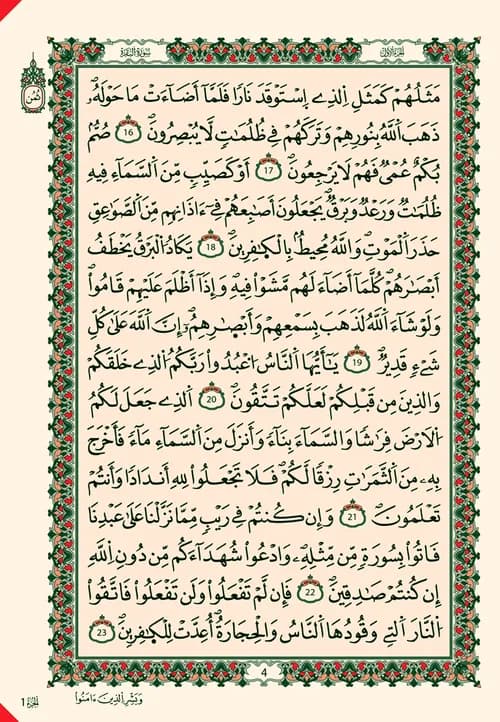 الجزء الأول
سورة البقرة
ثمن
مَثَلُهُمْ كَمَثَلِ اِ۬لذِے اِ۪سْتَوْقَدَ نَاراٗ فَلَمَّآ أَضَآءَتْ مَا حَوْلَهُۥ
ذَهَبَ اَ۬للَّهُ بِنُورِهِمْ وَتَرَكَهُمْ فِے ظُلُمَٰتٖ لَّا يُبْصِرُونَۖ 16 صُمُّۢ
بُكْمٌ عُمْيٞ فَهُمْ لَا يَرْجِعُونَۖ 17 أَوْ كَصَيِّبٖ مِّنَ اَ۬لسَّمَآءِ فِيهِ
ظُلُمَٰتٞ وَرَعْدٞ وَبَرْقٞ يَجْعَلُونَ أَصَٰبِعَهُمْ فِےٓ ءَاذَانِهِم مِّنَ اَ۬لصَّوَٰعِقِ
حَذَرَ اَ۬لْمَوْتِۖ وَاللَّهُ مُحِيطُۢ بِالْكٰ۪فِرِينَۖ 18 يَكَادُ اُ۬لْبَرْقُ يَخْطَفُ
أَبْصَٰرَهُمْۖ كُلَّمَآ أَضَآءَ لَهُم مَّشَوْاْ فِيهِ وَإِذَآ أَظْلَمَ عَلَيْهِمْ قَامُواْۖ
وَلَوْ شَآءَ اَ۬للَّهُ لَذَهَبَ بِسَمْعِهِمْ وَأَبْصٰ۪رِهِمُۥٓۖ إِنَّ اَ۬للَّهَ عَلَىٰ كُلِّ
شَےْءٖ قَدِيرٞۖ 19 يَٰٓأَيُّهَا اَ۬لنَّاسُ اُ۟عْبُدُواْ رَبَّكُمُ اُ۬لذِے خَلَقَكُمْ
وَالذِينَ مِن قَبْلِكُمْ لَعَلَّكُمْ تَتَّقُونَۖ 20 اَ۬لذِے جَعَلَ لَكُمُ
اُ۬لَارْضَ فِرَٰشاٗ وَالسَّمَآءَ بِنَآءٗ وَأَنزَلَ مِنَ اَ۬لسَّمَآءِ مَآءٗ فَأَخْرَجَ
بِهِۦ مِنَ اَ۬لثَّمَرَٰتِ رِزْقاٗ لَّكُمْۖ فَلَا تَجْعَلُواْ لِلهِ أَندَاداٗ وَأَنتُمْ
تَعْلَمُونَۖ 21 وَإِن كُنتُمْ فِے رَيْبٖ مِّمَّا نَزَّلْنَا عَلَىٰ عَبْدِنَا
فَاتُواْ بِسُورَةٖ مِّن مِّثْلِهِۦ وَادْعُواْ شُهَدَآءَكُم مِّن دُونِ اِ۬للَّهِ
إِن كُنتُمْ صَٰدِقِينَۖ 22 فَإِن لَّمْ تَفْعَلُواْ وَلَن تَفْعَلُواْ فَاتَّقُواْ
اُ۬لنَّارَ اَ۬لتِے وَقُودُهَا اَ۬لنَّاسُ وَالْحِجَارَةُۖ أُعِدَّتْ لِلْكٰ۪فِرِينَۖ 23
4
وَبَشِّرِ اِ۬لذِينَ ءَامَنُواْ
الجزء 1